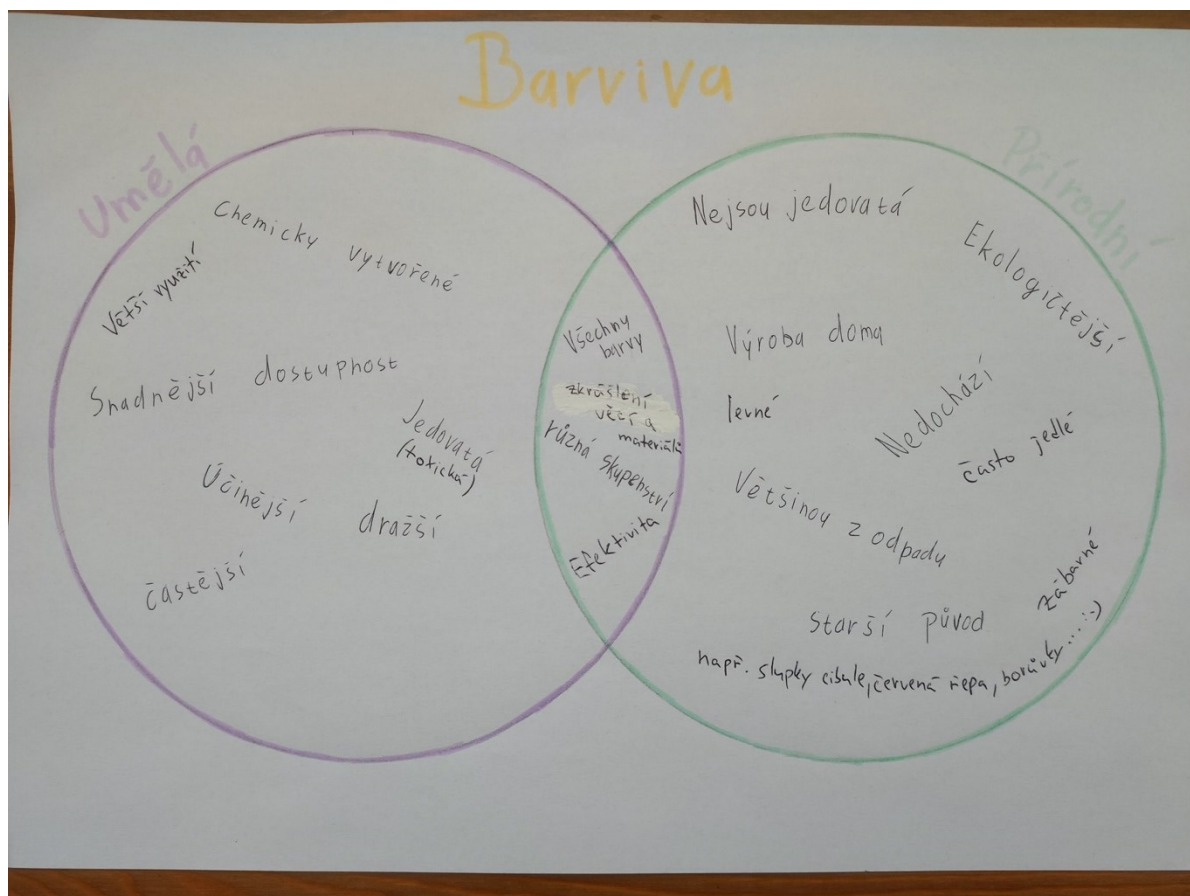 Barviva
Umělá
Chemicky vytvořené
Větší využití
Snadnější dostupnost
Jedovatá
(toxická)
Účinější
dražší
častější
Všechny
barvy
zkrášlení
věcí a
materiálů
různá skupenství
Efektivita
Přírodní
Nejsou jedovatá
Ekologičtější
Výroba doma
levné
Nedochází
často jedlé
Většinou z odpadu
zábarné
starší původ
např. slupky cibule, červená řepa, borůvky...:-)